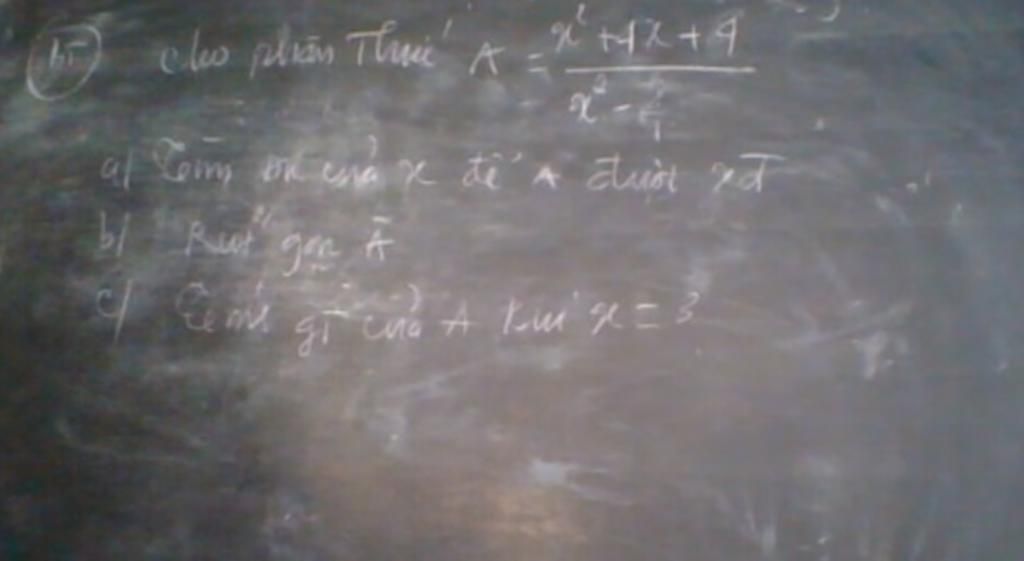 BT Cho phân Thức A = \frac{x^2+4x+4}{x^2-4}
a/ Tìm đk của x để A được xđ
b/ Rút gọn A
c/ Tính gT của A khi x = 3